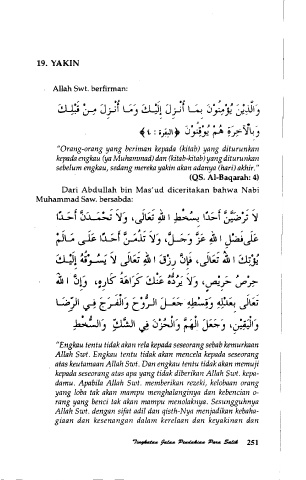 19. YAKIN
Allah Swt. berfirman:
وَالَّذِيْنَ يُؤْمِنُوْنَ بِمَا أُنْزِلَ إِلَيْكَ وَمَا أُنْزِلَ مِنْ قَبْلِكَ
وَبِالْآخِرَةِ هُمْ يُوْقِنُوْنَ ﴿البقرة : ٤﴾
"Orang-orang yang beriman kepada (kitab) yang diturunkan
kepada engkau (ya Muhammad) dan (kitab-kitab) yang diturunkan
sebelum engkau, sedang mereka yakin akan adanya (hari) akhir."
(QS. Al-Baqarah: 4)
Dari Abdullah bin Mas'ud diceritakan bahwa Nabi
Muhammad Saw. bersabda:
لَا تَرْضَيَنَّ أَحَدًا بِسُخْطِ اللهِ تَعَالَى، وَلَا تَحْمَدَنَّ أَحَدًا
عَلَى فَضْلِ اللهِ عَزَّ وَجَلَّ، وَلَا تَذُمَّنَّ أَحَدًا عَلَى مَالَمْ
يُؤْتِكَ اللهُ تَعَالَى، فَإِنَّ رِزْقَ اللهِ تَعَالَى لَا يَسُوْقُهُ إِلَيْكَ
حِرْصُ حَرِيْصٍ، وَلَا يَرُدُّهُ عَنْكَ كَرَاهَةُ كَارِهٍ، وَإِنَّ اللهَ
تَعَالَى بِعَدْلِهِ وَقِسْطِهِ جَعَلَ الرَّوْحَ وَالْفَرَحَ فِي الرِّضَا
وَالْيَقِيْنِ، وَجَعَلَ الْهَمَّ وَالْحُزْنَ فِي الشَّكِّ وَالسُّخْطِ
"Engkau tentu tidak akan rela kepada seseorang sebab kemurkaan
Allah Swt. Engkau tentu tidak akan mencela kepada seseorang
atas keutamaan Allah Swt. Dan engkau tentu tidak akan memuji
kepada seseorang atas apa yang tidak diberikan Allah Swt. kepa-
damu. Apabila Allah Swt. memberikan rezeki, kelobaan orang
yang loba tak akan mampu menghalanginya dan kebencian o-
rang yang benci tak akan mampu menolaknya. Sesungguhnya
Allah Swt. dengan sifat adil dan qisth-Nya menjadikan kebaha-
giaan dan kesenangan dalam kerelaan dan keyakinan dan
Tingkatan Jalan Pendakian Para Salik 251